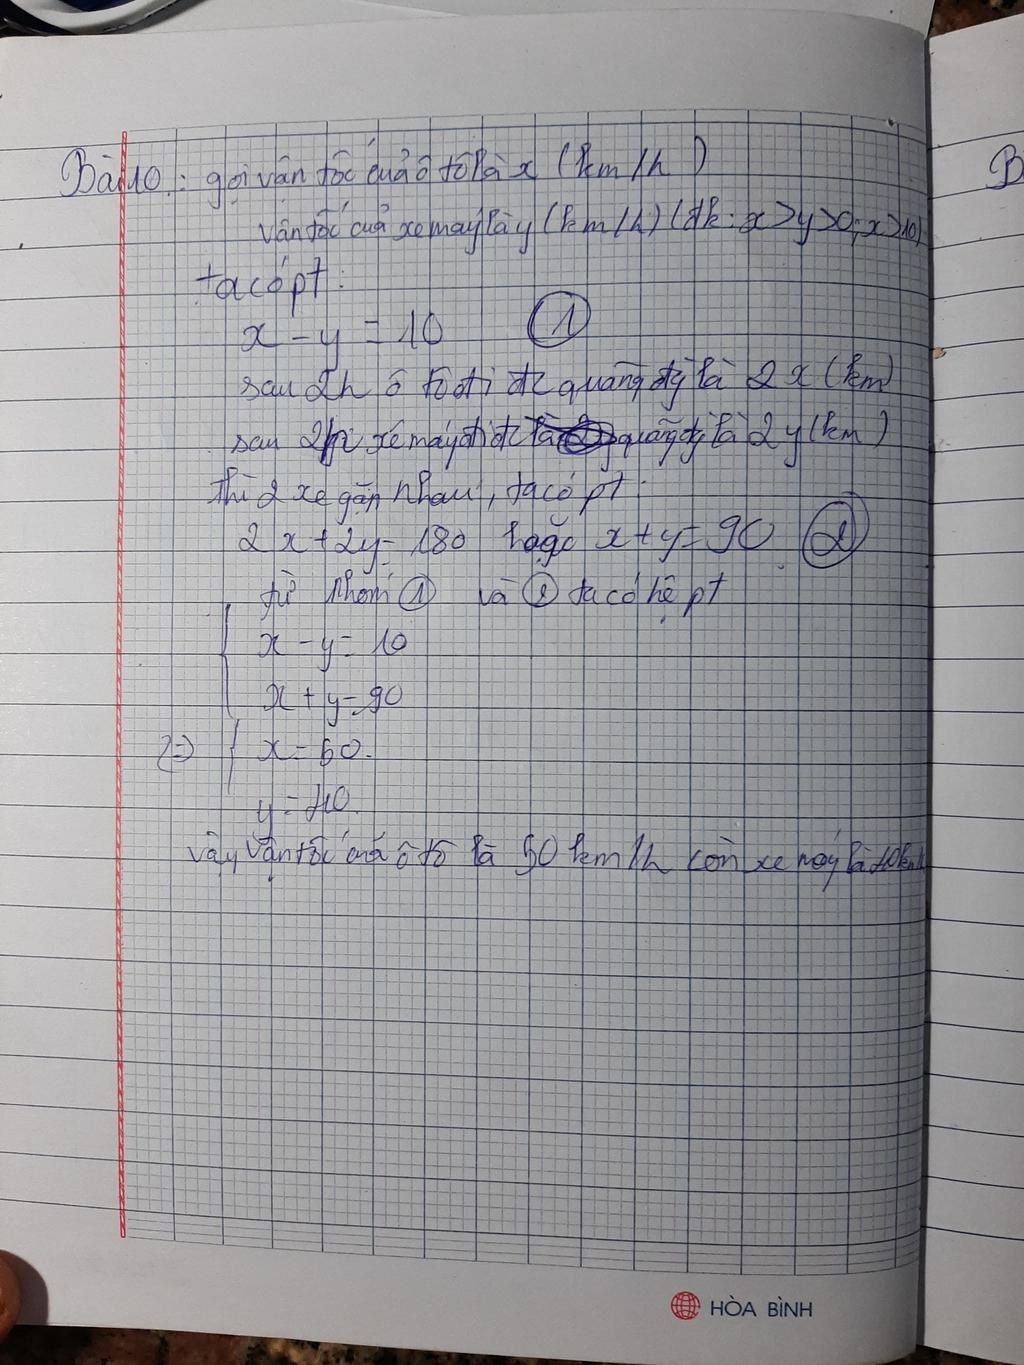 Bài 10: gọi vận tốc của ô tô là x (km/h)
B
vận tốc của xe máy là y (km/h) (đk: x>y>0; x>10)
ta có pt:
x - y = 10 ①
sau 2h ô tô đi đc quãng đg là 2x (km)
sau 2h xe máy đi đc là quãng đg là 2y (km)
thì 2 xe gặp nhau, ta có pt:
2x+2y=180 hoặc x+y=90 ②
từ ① và ② ta có hệ pt
x - y = 10
x + y = 90
x = 50.
y = 40.
vậy vận tốc của ô tô là 50 km/h còn xe máy là 40km/h
HÒA BÌNH